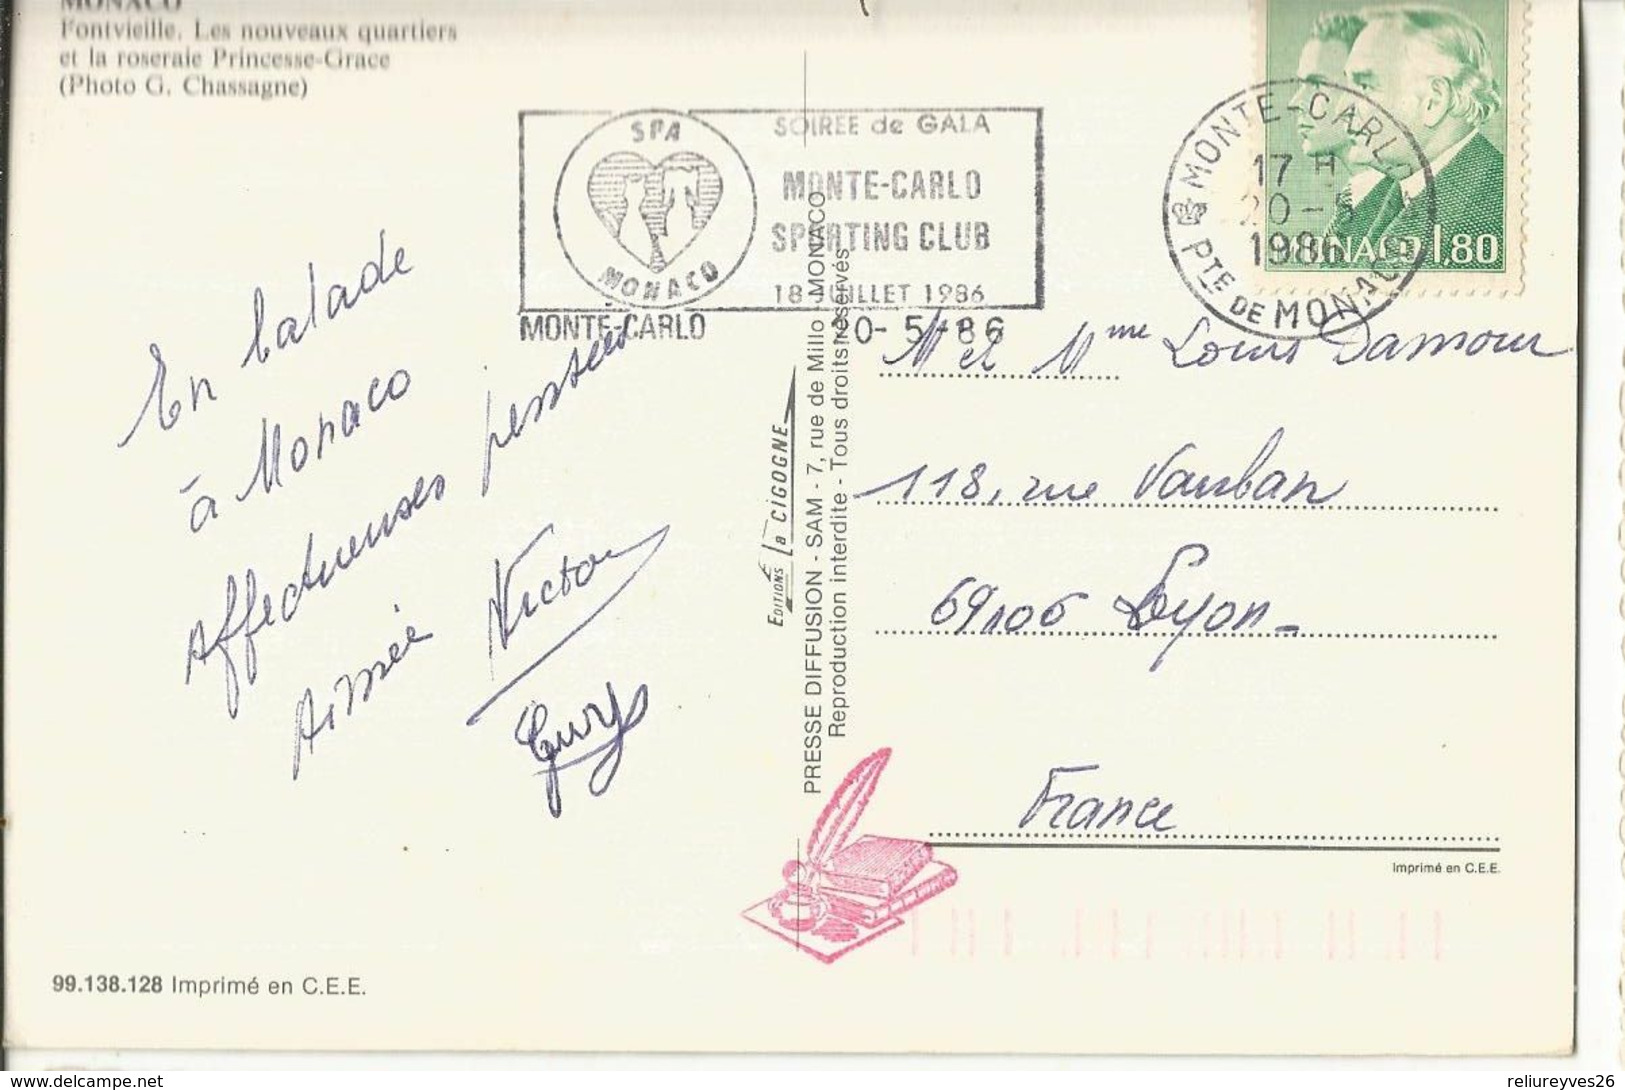 MONACO
Fontvieille. Les nouveaux quartiers
et la roseraie Princesse-Grace
(Photo G. Chassagne)
SPA
MONACO
SOIREE de GALA
MONTE-CARLO
SPORTING CLUB
18 JUILLET 1986
MONTE-CARLO
20-5-86
MONTE-CARLO
17 H
20-5
1986
PTE DE MONACO
MONACO 1,80
En balade
à Monaco
Affectueuses pensées
Aimée Victor
M et Mme Louis Damour
118, rue Vauban
69006 Lyon-
France
EDITIONS La CIGOGNE
PRESSE DIFFUSION - SAM - 7, rue de Millo - MONACO
Reproduction interdite - Tous droits réservés
Imprimé en C.E.E.
99.138.128 Imprimé en C.E.E.
reliureyves26